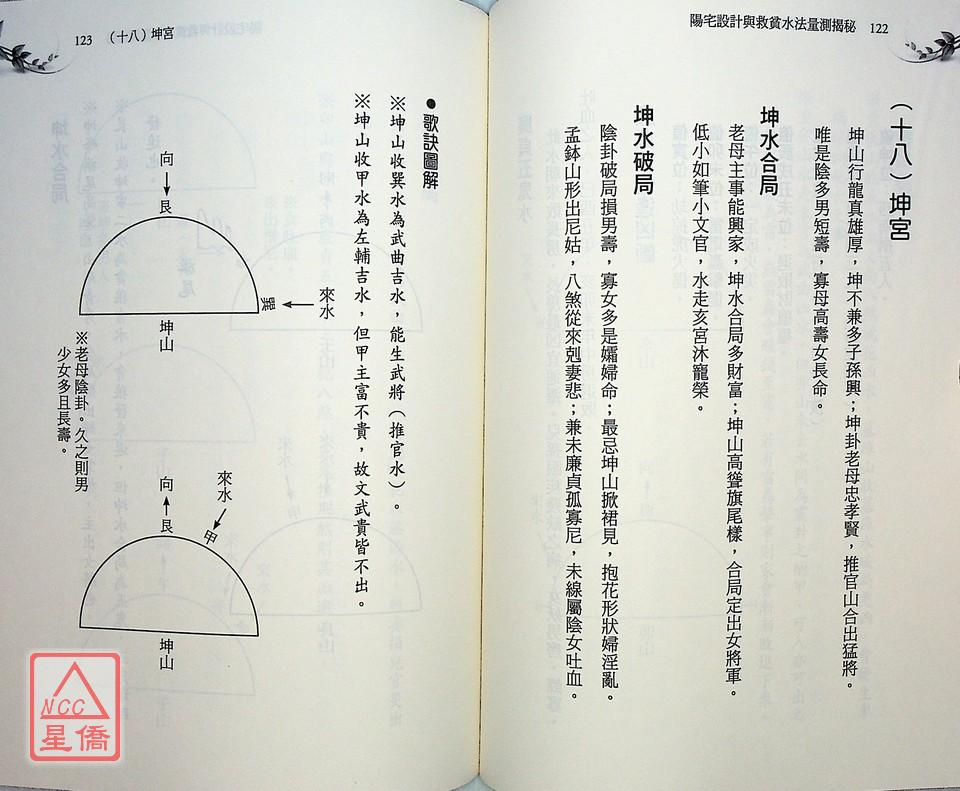 陽宅設計與救貧水法量測揭秘 122
（十八）坤宮
坤山行龍真雄厚，坤不兼多子孫興；坤卦老母忠孝賢，推官山合出猛將。
唯是陰多男短壽，寡母高壽女長命。
坤水合局
老母主事能興家，坤水合局多財富；坤山高聳旗尾樣，合局定出女將軍。
低小如筆小文官，水走亥宮沐寵榮。
坤水破局
陰卦破局損男壽，寡女多是孀婦命；最忌坤山掀裙見，抱花形狀婦淫亂。
孟鉢山形出尼姑，八煞從來剋妻悲；兼未廉貞孤寡尼，未線屬陰女吐血。
123 （十八）坤宮
●歌訣圖解
※坤山收巽水為武曲吉水，能生武將（推官水）。
※坤山收甲水為左輔吉水，但甲主富不貴，故文武貴皆不出。
向
艮
巽
來水
坤山
※老母陰卦。久之則男
少女多且長壽。
來水
甲
向
艮
坤山
NCC
星僑